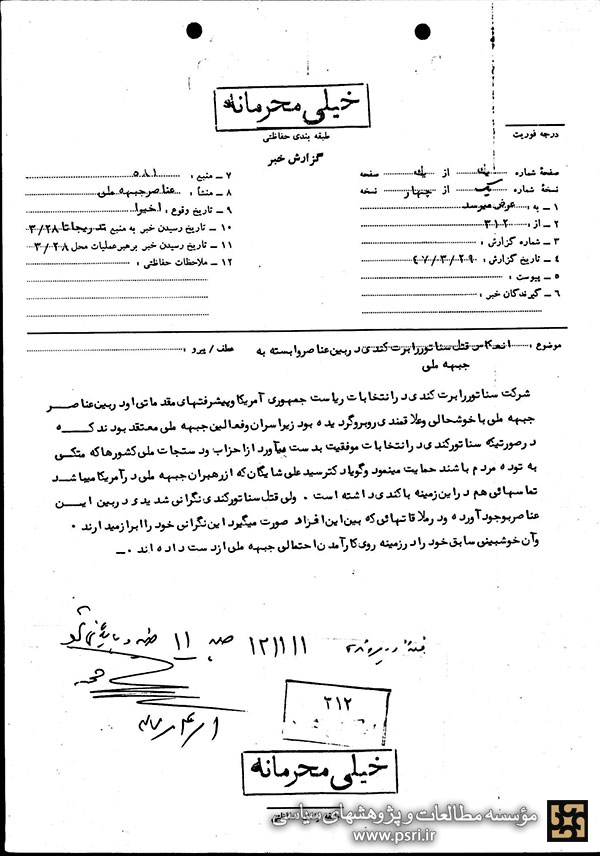 خیلی محرمانه
طبقه بندی حفاظتی
درجه فوریت
گزارش خبر
صفحهٔ شماره یک از یک صفحه
نسخهٔ شماره یک از چهار نسخه
۱ ـ به : عرض میرسد
۲ ـ از : ۳۱۲
۳ ـ شماره گزارش :
۴ ـ تاریخ گزارش : ۴۷/۳/۲۹
۵ ـ پیوست :
۶ ـ گیرندگان خبر :
۷ ـ منبع : ۵۸۱
۸ ـ منشأ : عناصر جبهه ملی
۹ ـ تاریخ وقوع : اخیرا
۱۰ ـ تاریخ رسیدن خبر به منبع تدریجا تا ۳/۲۸
۱۱ ـ تاریخ رسیدن خبر برهبر عملیات محل ۳/۲۸
۱۲ ـ ملاحظات حفاظتی :
موضوع : انعکاس قتل سناتور رابرت کندی در بین عناصر وابسته به عطف / پیرو :
جبهه ملی
شرکت سناتور رابرت کندی در انتخابات ریاست جمهوری آمریکا و پیشرفتهای مقدماتی او در بین عناصر
جبهه ملی با خوشحالی و علاقمندی روبرو گردیده بود زیرا سران و فعالین جبهه ملی معتقد بودند که
در صورتیکه سناتور کندی در انتخابات موفقیت بدست میآورد از احزاب و دستجات ملی کشورها که متکی
به توده مردم باشند حمایت مینمود و گویا دکتر سید علی شایگان که از رهبران جبهه ملی در آمریکا میباشد
تماسهائی هم در این زمینه با کندی داشته است . ولی قتل سناتور کندی نگرانی شدیدی در بین این
عناصر بوجود آورده و در ملاقاتهائی که بین این افراد صورت میگیرد این نگرانی خود را ابراز میدارند .
و آن خوشبینی سابق خود را در زمینه روی کار آمدن احتمالی جبهه ملی از دست داده اند . ـ
۳۱۲
خیلی محرمانه
مؤسسه مطالعات و پژوهشهای سیاسی
www.psri.ir